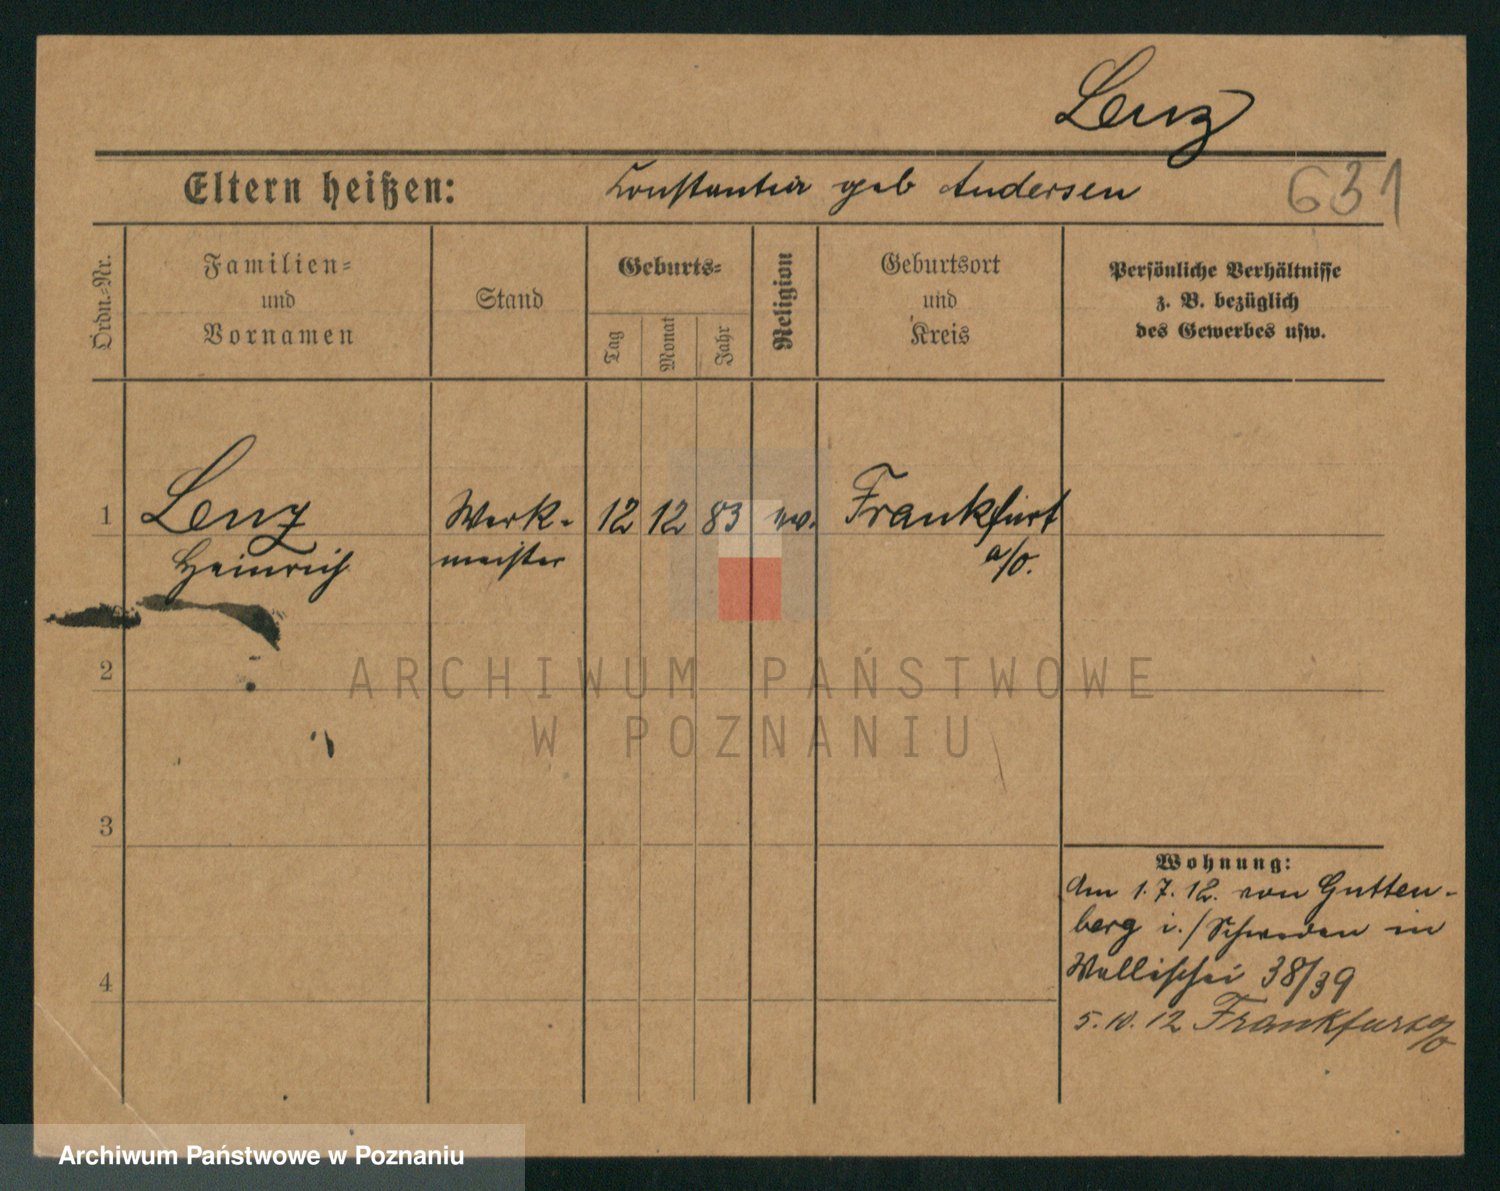 Lenz
Eltern heißen: Constantin geb Andersen
631
Ordn.=Nr.
Familien=
und
Vornamen
Stand
Geburts=
Tag
Monat
Jahr
Religion
Geburtsort
und
Kreis
Persönliche Verhältnisse
z. B. bezüglich
des Gewerbes usw.
1
Lenz
Heinrich
Werk-
meister
12
12
83
ev.
Frankfurt
a/O.
2
ARCHIWUM PAŃSTWOWE
W POZNANIU
3
4
Wohnung:
Am 1.7.12. von Gutten-
berg i./Schweden in
Wallischei 38/39
5.10.12 Frankfurt a/O
Archiwum Państwowe w Poznaniu